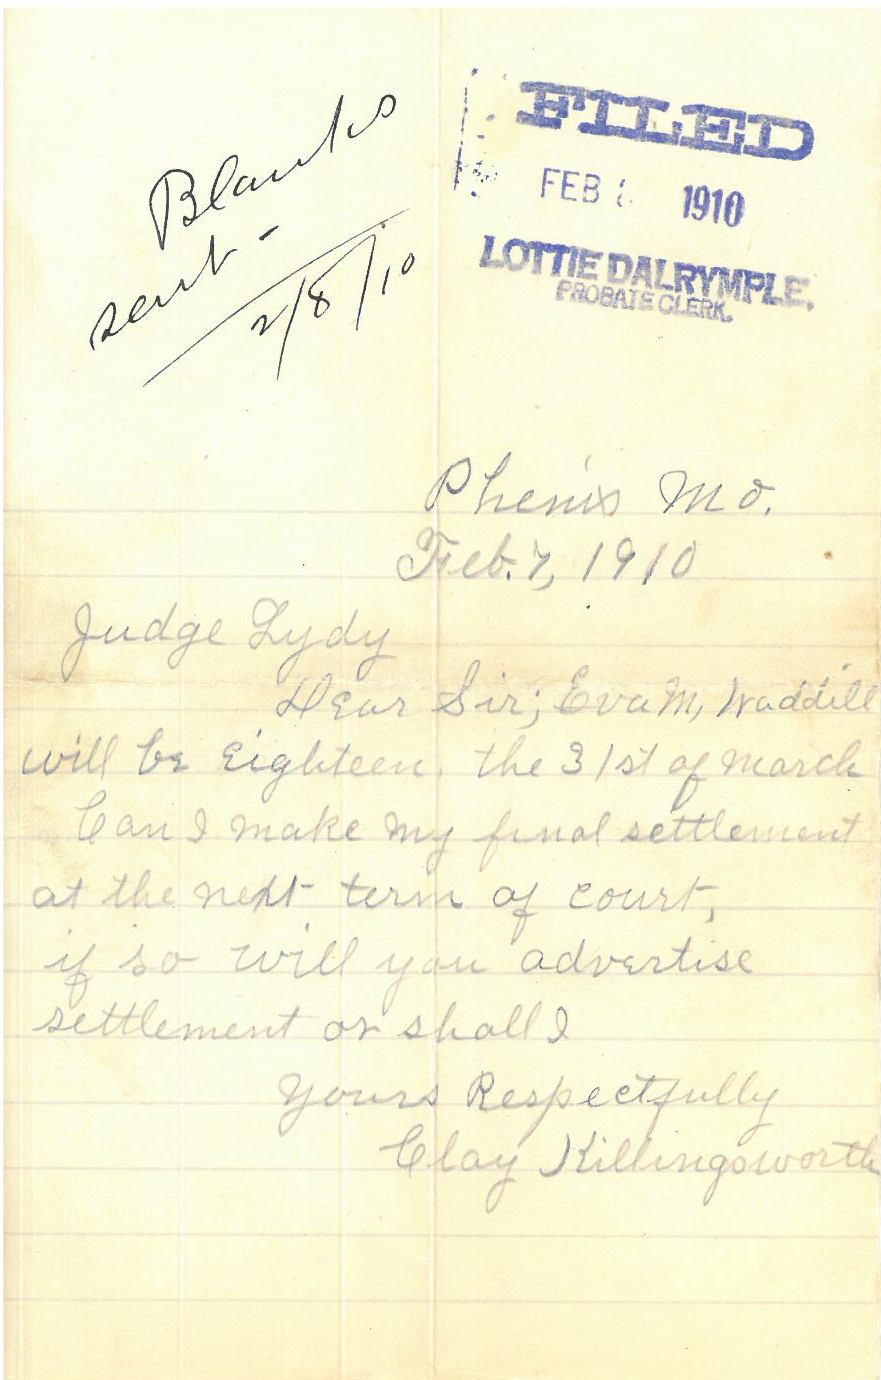 Blanks
sent -
2/8/10
FILED
FEB 1910
LOTTIE DALRYMPLE,
PROBATE CLERK.
Phenix Mo.
Feb. 7, 1910
Judge Lydy
Dear Sir; Eva M, Waddill
will be Eighteen. the 31st of March
Can I make my final settlement
at the next term of court,
if so will you advertise
settlement or shall I
Yours Respectfully
Clay Killingsworth